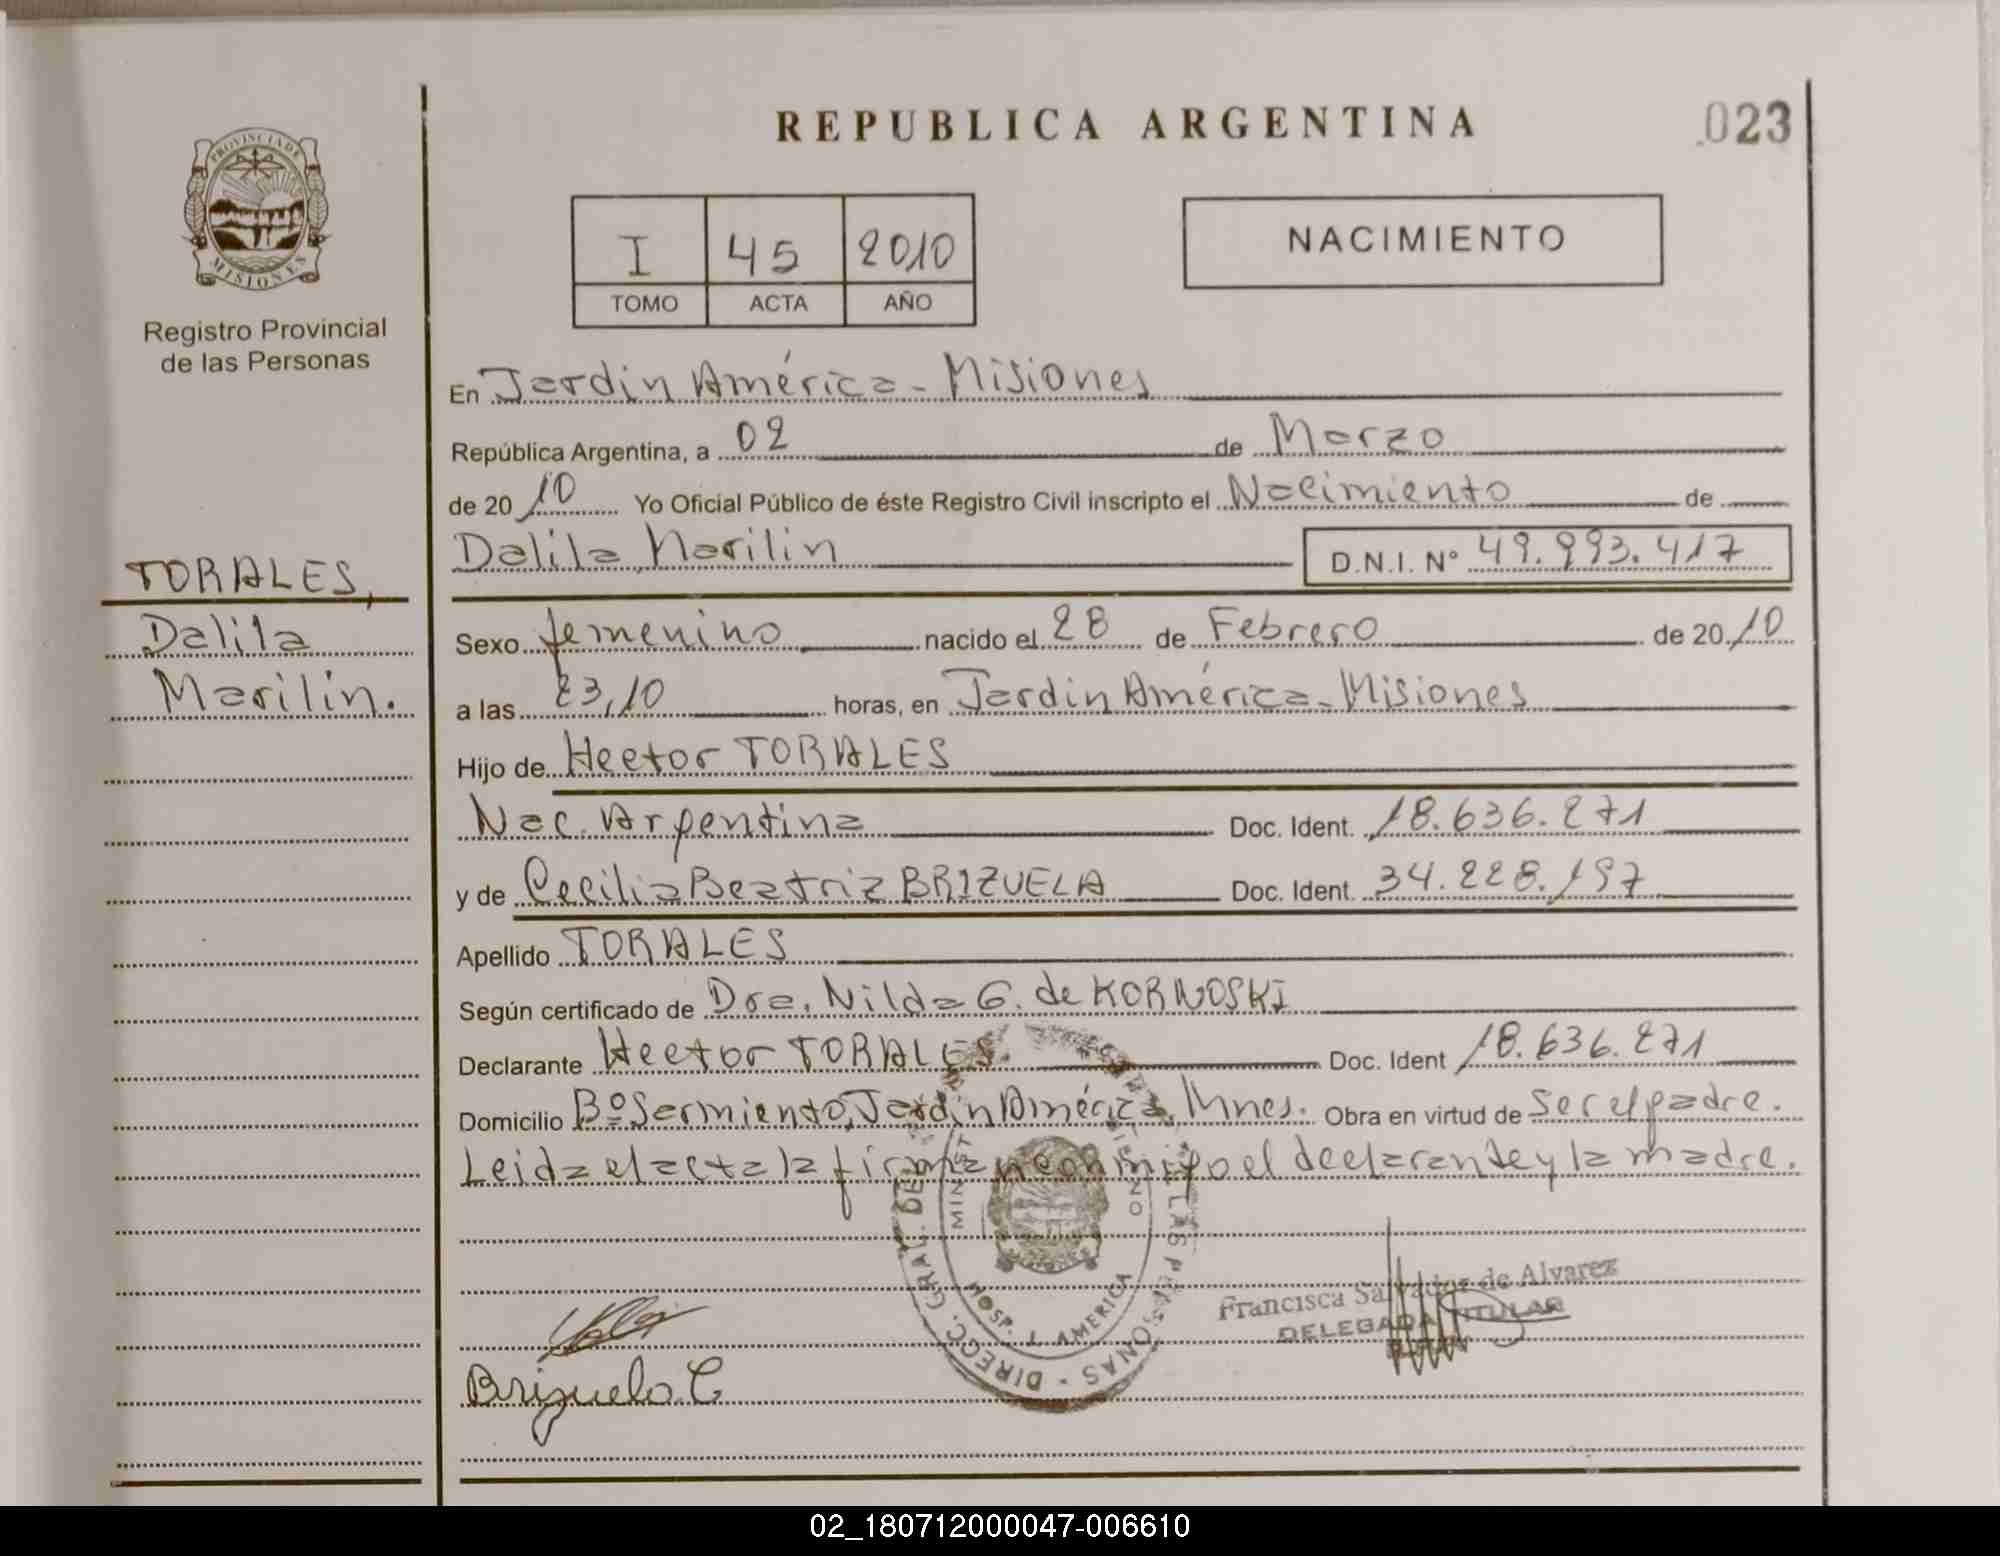 REPUBLICA ARGENTINA
023
PROVINCIA DE
MISIONES
Registro Provincial
de las Personas
I 45 2010
TOMO ACTA AÑO
NACIMIENTO
En Jardin América - Misiones
República Argentina, a 02 de Marzo
de 20 10 Yo Oficial Público de éste Registro Civil inscripto el Nacimiento de
Dalila Marilin D.N.I. Nº 49.993.417
TORALES,
Dalila
Marilin.
Sexo femenino nacido el 28 de Febrero de 20 10
a las 23,10 horas, en Jardin América - Misiones
Hijo de Hector TORALES
Nac. Argentina Doc. Ident. 18.636.271
y de Cecilia Beatriz BRIZUELA Doc. Ident. 34.228.197
Apellido TORALES
Según certificado de Dra. Nilda G. de KORNOSKI
Declarante Hector TORALES. Doc. Ident 18.636.271
Domicilio Bº Sarmiento, Jardin América, Mnes. Obra en virtud de ser el padre.
Leida el acta la firman conmigo el declarante y la madre.
DIRECC. GRAL. DE LAS PERSONAS
HOSP. J. AMERICA
Francisca Salvador de Alvarez
DELEGADA TITULAR
Brizuela C
02_180712000047-006610